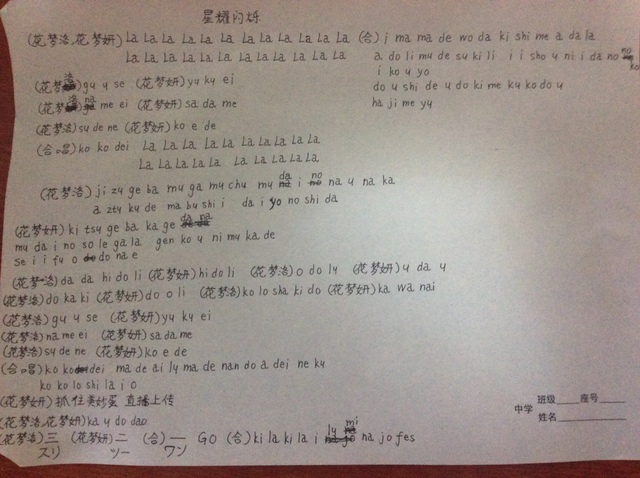 星耀闪烁
(花梦洛,花梦妍) La La La La La La La La La La (合) i ma ma de wo da ki shi me a da la
La La La La La La La La La La a do li mu de su ki li i i sho u ni i da no ko
i ko u yo
(花梦洛) gu u se (花梦妍) yu ku ei do u shi de u do ki me ku ko do u
(花梦洛) na me ei (花梦妍) sa da me ha ji me yu
(花梦洛) su de ne (花梦妍) ko e de
(合唱) ko ko dei La La La La La La La La
La La La La La La La La La
(花梦洛) ji zu ge ba mu ga mu chu mu da i no na u na ka
a ztu ku de ma bu shi i da i yo no shi da
(花梦妍) ki tsu ge ba ka ge da na
mu da i no so le ga la gen ko u ni mu ka de
se i i fu o do na e
(花梦洛) da da hi do li (花梦妍) hi do li (花梦洛) o do lu (花梦妍) u da u
(花梦洛) do ka ki (花梦妍) do o li (花梦洛) ko lo sha ki do (花梦妍) ka wa nai
(花梦洛) gu u se (花梦妍) yu ku ei
(花梦洛) na me ei (花梦妍) sa da me
(花梦洛) su de ne (花梦妍) ko e de
(合唱) ko ko dei ma de ai lu ma de nan do a dei ne ku
ko ko lo shi la i o
(花梦妍) 抓住美妙蛋 直播上传
(花梦洛,花梦妍) ka u do dao
(花梦洛) 三 (花梦妍) 二 (合) 一 GO (合) ki la ki la i lu mi na jo fes
スリ ツー ワン
中学 班级 座号
姓名